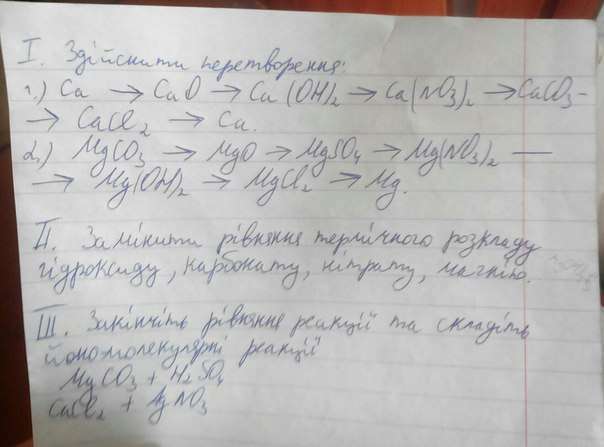 I. Здійснити перетворення:
1.) Ca → CaO → Ca(OH)2 → Ca(NO3)2 → CaCO3 -
→ CaCl2 → Ca.
2.) MgCO3 → MgO → MgSO4 → Mg(NO3)2 —
→ Mg(OH)2 → MgCl2 → Mg.
II. Замінити рівняння термічного розкладу
гідроксиду, карбонату, нітрату, магнію.
III. Закінчіть рівняння реакції та складіть
йономолекулярні реакції
MgCO3 + H2SO4
CaCl2 + AgNO3